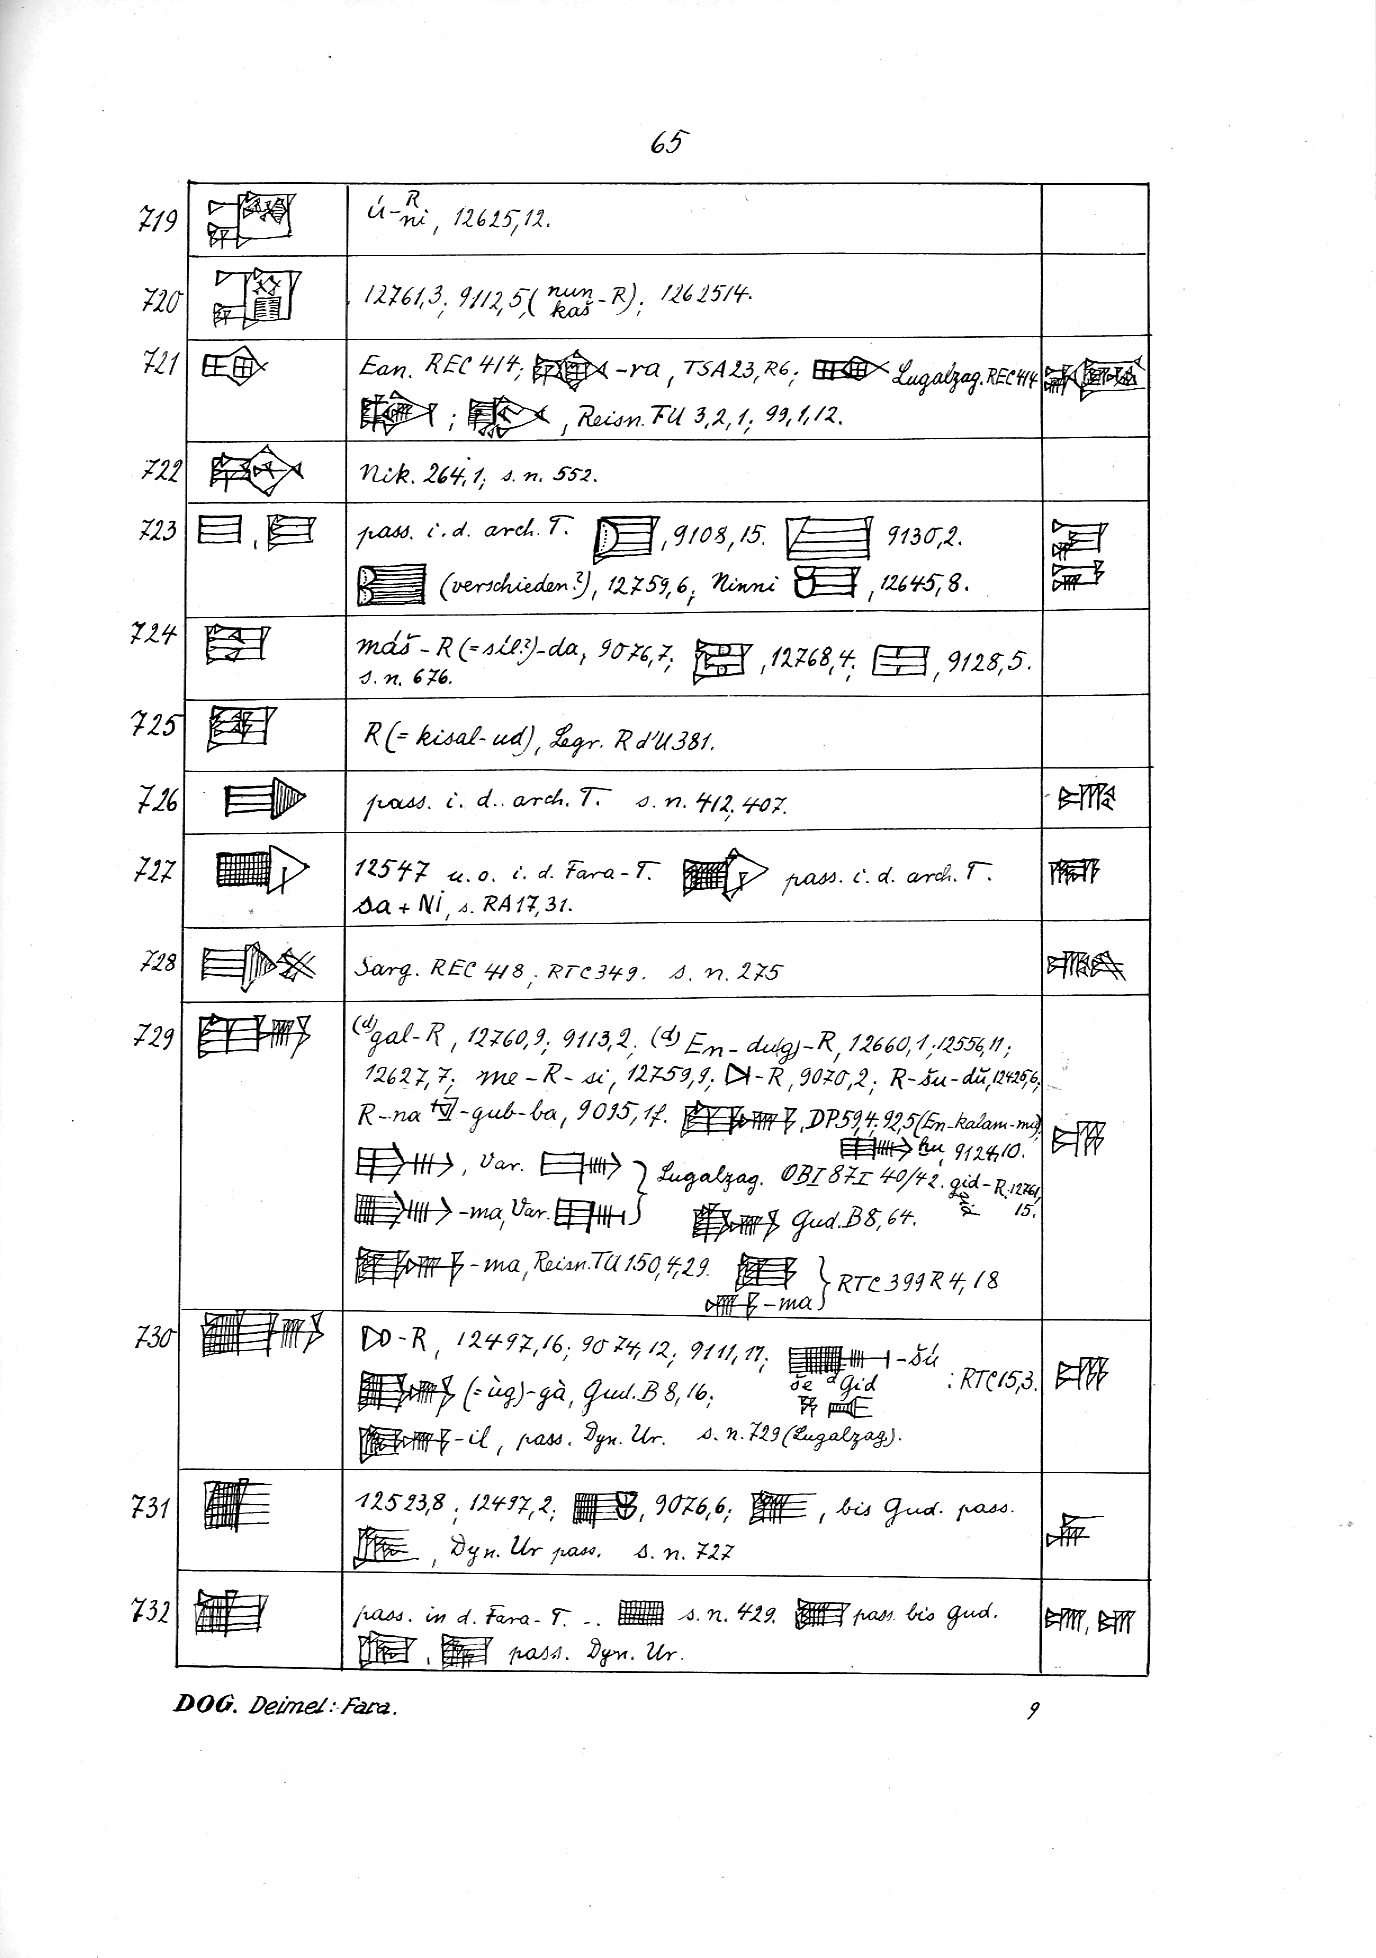 65
719 ú-R ni, 12625,12.
720 12761,3; 9112,5,(nun kaš-R); 12625,14.
721 Ean. REC 414; -ra, TSA 23, R6; Lugalzag. REC 414
; , Reisn. TU 3,2,1; 99,1,12.
722 Nik. 264,1; s. n. 552.
723 , pass. i. d. arch. T. , 9108,15. 9130,2.
(verschieden?), 12759,6; Ninni , 12645,8.
724 máš-R (=síl?)-da, 9076,7; , 12768,4; , 9128,5.
s. n. 676.
725 R (= kisal-ud), Legr. R d'U 381.
726 pass. i. d. arch. T. s. n. 412; 407.
727 12547 u. o. i. d. Fara-T. pass. i. d. arch. T.
sa + NI, s. RA 17,31.
728 Sarg. REC 418; RTC 349. s. n. 275
729 (d)gal-R, 12760,9; 9113,2; (d) En-du(g)-R, 12660,1; 12556,11;
12627,7; me-R-si, 12759,9; -R, 9070,2; R-šu-dŭ, 12425,6;
R-na -gub-ba, 9095,1f. , DP 59,4; 92,5 (En-kalam-ma),
hu, 9124,10.
, Var. Lugalzag. OBI 87 I 40/42. gid-R, 12761,
gid 15.
-ma, Var. Gud. B 8,64.
-ma, Reisn. TU 150,4,29. RTC 399 R 4,18
-ma
730 -R, 12497,16; 9074,12; 9111,17; -šú
še d Gid : RTC 15,3.
(=ùg)-gà, Gud. B 8,16;
-il, pass. Dyn. Ur. s. n. 729 (Lugalzag).
731 12523,8; 12497,2; , 9076,6; , bis Gud. pass.
, Dyn. Ur pass. s. n. 727
732 pass. in d. Fara-T. .. s. n. 429. pass. bis Gud.
, pass. Dyn. Ur.
DOG. Deimel: Fara. 9